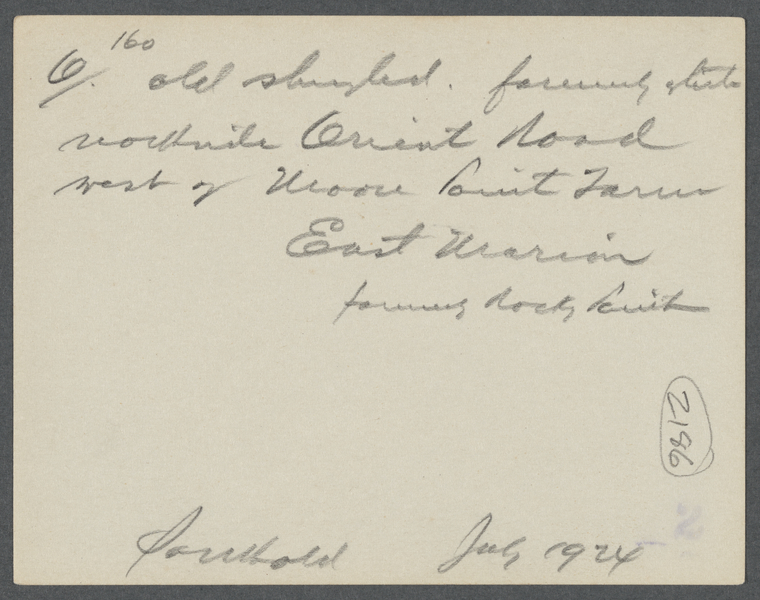 160
6/. old shingled. formerly white
northside Orient Road
west of Moore Point Farm
East Marion
formerly Rocky Point
2186
Southold July 1924